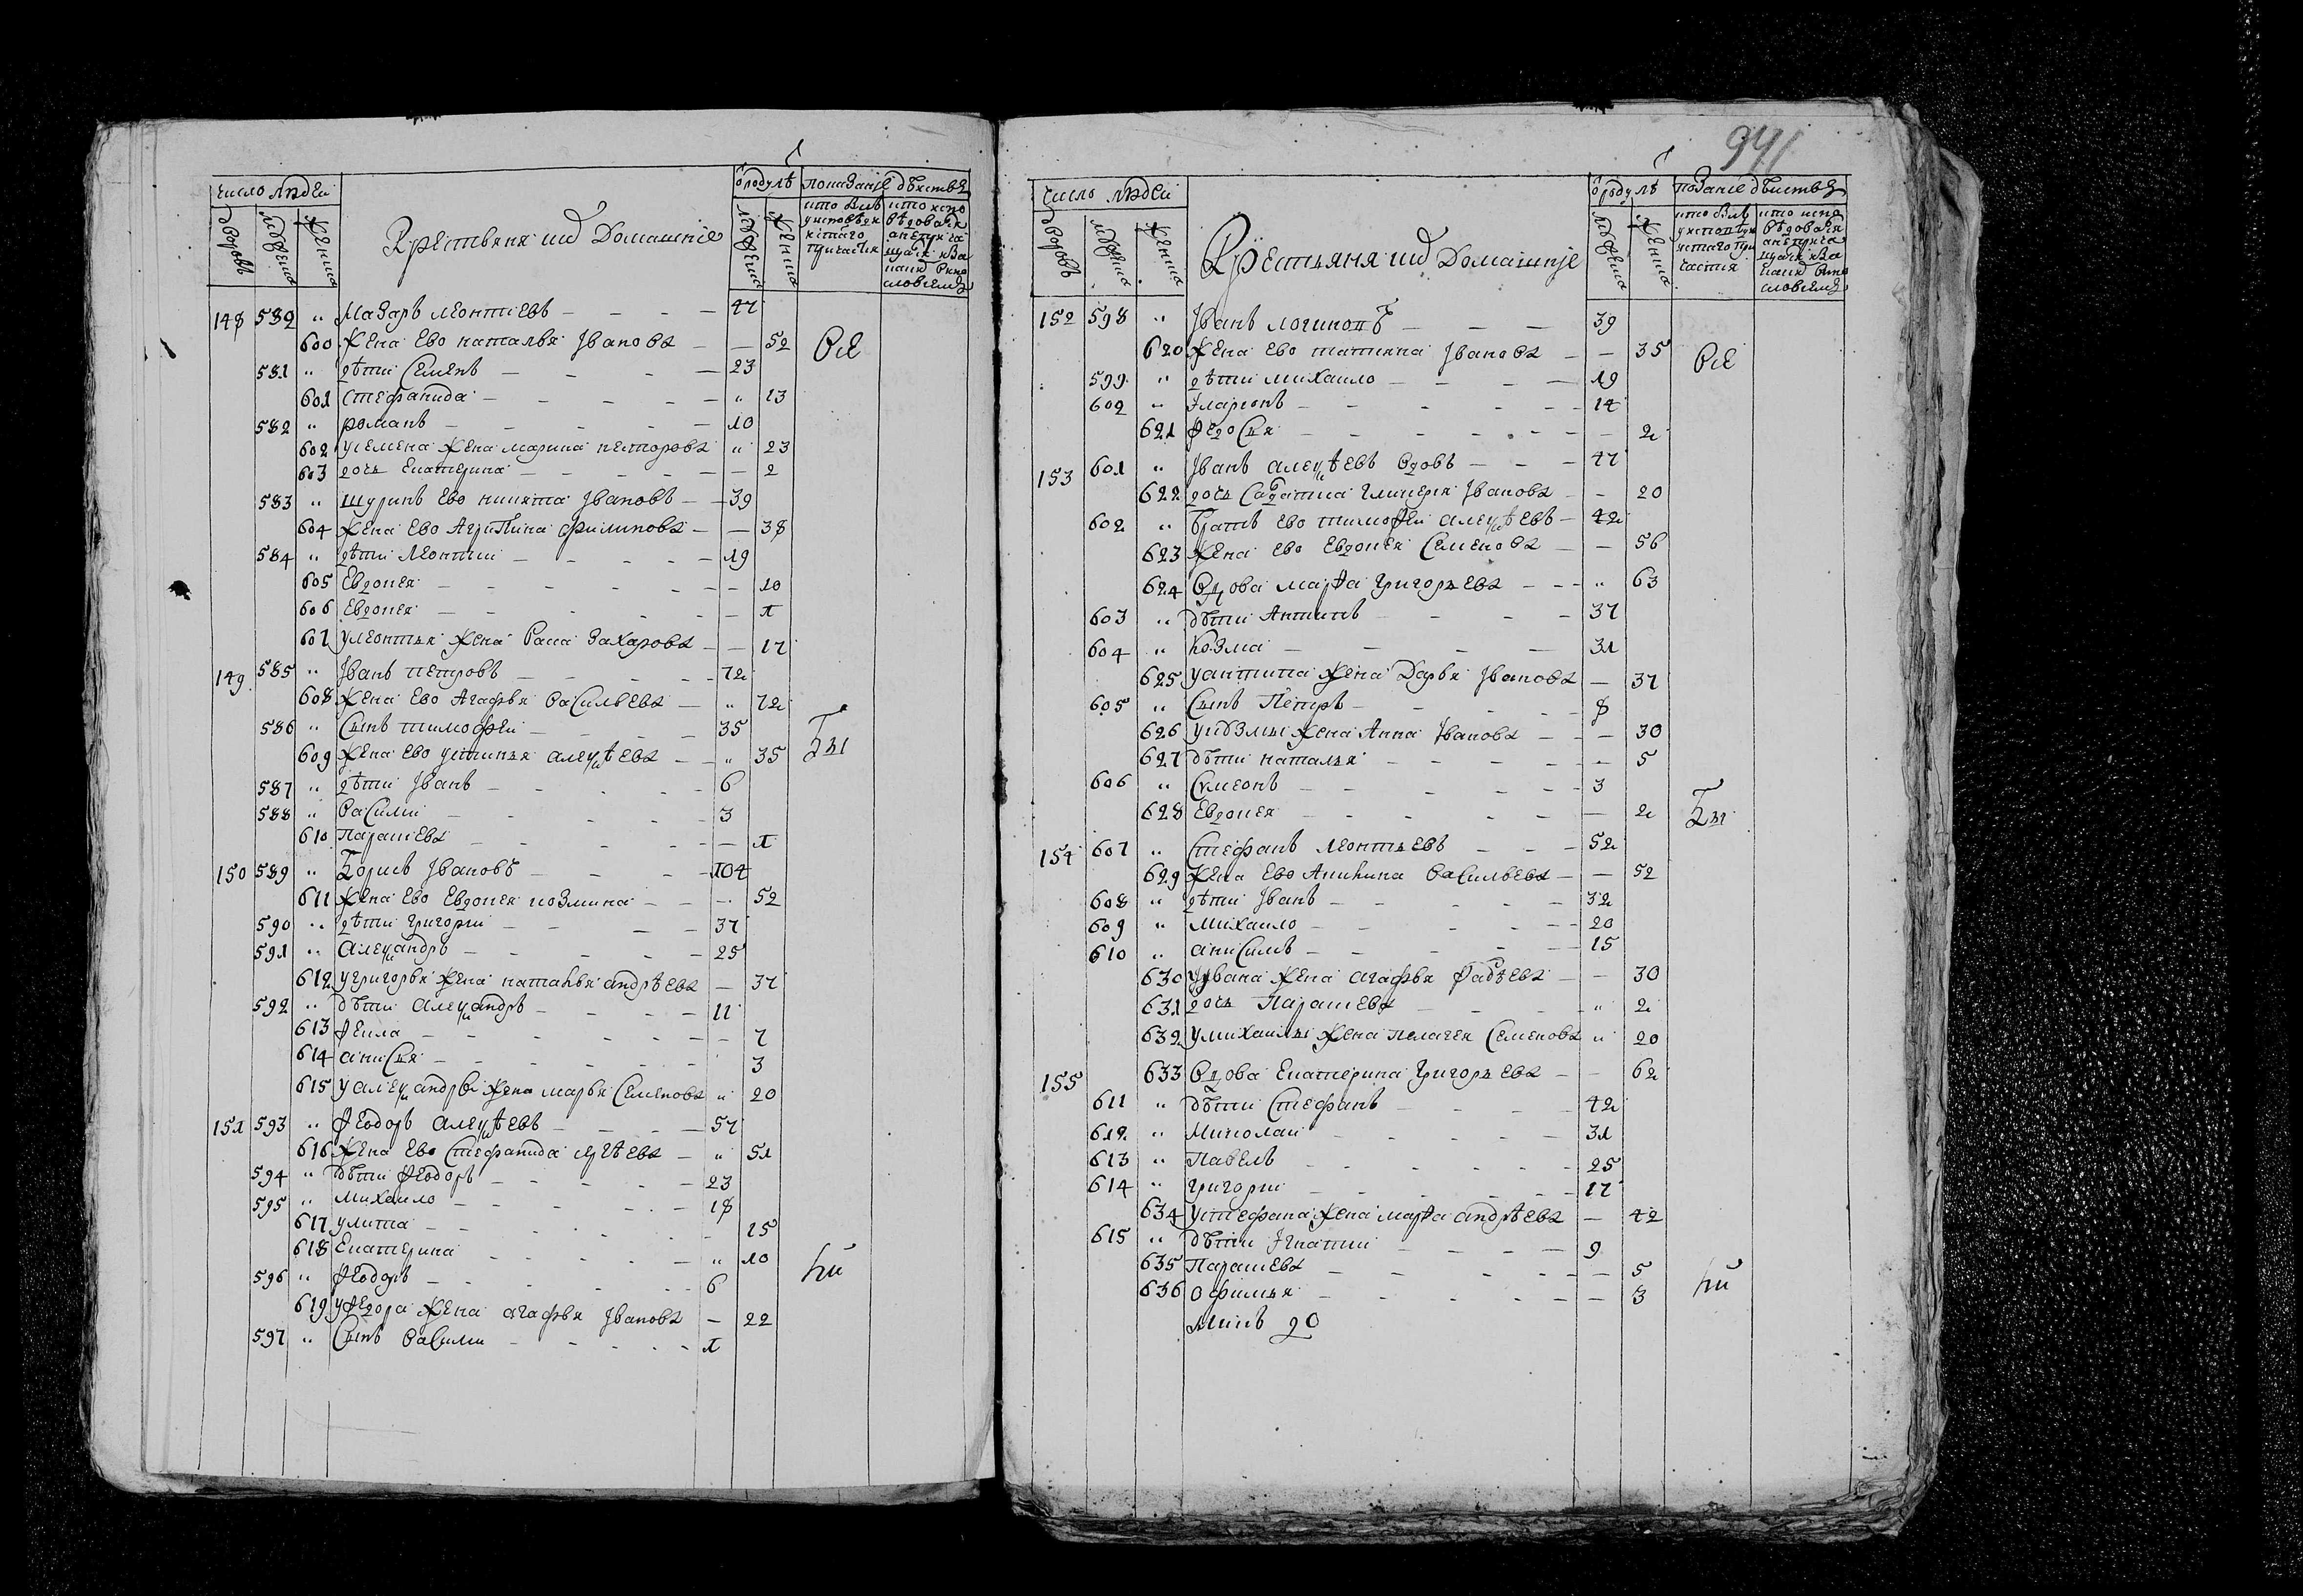 число людей
дворовъ
мужеска
женска
Крестьяня и их Домашніе
о роду лѣ
мужеска
женска
показаніе дѣйства
148 589 „ Назаръ Леонтіевъ — 47
600 Жена ево наталья Iванова — 52
Всѣ
581 „ дѣти Семенъ — 23
601 Стефанида — „ 13
582 „ романъ — 10
602 у семена жена марина петрова „ 23
603 дочь Екатерина — 2
583 „ шуринъ ево никита Iвановъ — 39
604 жена ево Агрипина филипова — 38
584 „ дѣти Леонтии — 19
605 Евдокея — 10
606 Евдокея — 1
607 у леонтья жена васа Захарова — 17
149 585 „ Iванъ петровъ — 72
608 жена ево Агафья васильева — „ 72
586 „ Сынъ тимофеи — 35
609 жена ево устинья алеѯѣева — „ 35
Бы
587 „ дѣти Iванъ — 6
588 „ васили — 3
610 парасκева — 1
150 589 „ Борисъ Iвановъ — 104
611 жена ево Евдокея козмина — 52
590 „ дѣти григореи — 37
591 „ алеѯандръ — 25
612 у григорья жена наталья андрѣева — 37
592 „ дѣти алеѯандръ — 11
613 Ѳекла — 7
614 анисья — 3
615 у алеѯандра жена марья Семенова „ 20
151 593 „ Ѳеодоръ алеѯѣевъ — 57
616 жена ево Стефанида сергѣева — „ 51
594 „ дѣти Ѳеодоръ — 23
595 „ михаило — 18
617 улита — 15
618 Екатерина — „ 10
ли
596 „ Ѳеодоръ — 6
619 у Ѳедора жена агафья Iванова — 22
597 „ Сынъ васили — 1
941
число людей
дворовъ
мужеска
женска
Крестьяня и их Домашніе
о роду лѣ
мужеска
женска
показаніе дѣйства
152 598 „ Iванъ логиновъ — 39
620 жена ево татиана Iванова — 35
Всѣ
599 „ дѣти михаило — 19
602 „ Iларионъ — 14
621 Ѳедосья — 2
153 601 „ Iванъ алеѯѣевъ вдовъ — 47
622 дочь гликерия Iванова — 20
602 „ братъ ево тимоѳеи алеѯѣевъ — 42
623 жена ево Евдокея Семенова — 56
624 вдова марѳа григорьева — „ 63
603 „ дѣти Антипъ — 37
604 „ козма — 31
625 у антипа жена Дарья Iванова — 37
605 „ Сынъ Петръ — 8
626 у козмы жена Анна Iванова — 30
627 дѣти наталья — 5
606 „ Симеонъ — 3
628 Евдокея — 2
Бы
154 607 „ Стефанъ леонтьевъ — 52
629 жена ево акилина васильева — 52
608 „ дѣти Iванъ — 32
609 „ михаило — 20
610 „ анисимъ — 15
630 у Iвана жена агафья Ѳадѣева — 30
631 дочь Параскева — „ 2
632 у михаилы жена пелагея Семенова „ 20
155 633 вдова Екатерина григорьева — 62
611 „ дѣти Стефанъ — 42
612 „ Николаи — 31
613 „ Павелъ — 25
614 „ григореи — 17
634 у стефана жена марѳа андрѣева — 42
615 „ дѣти Iгнатии — 9
635 Параскева — 5
636 офимья — 3
ли